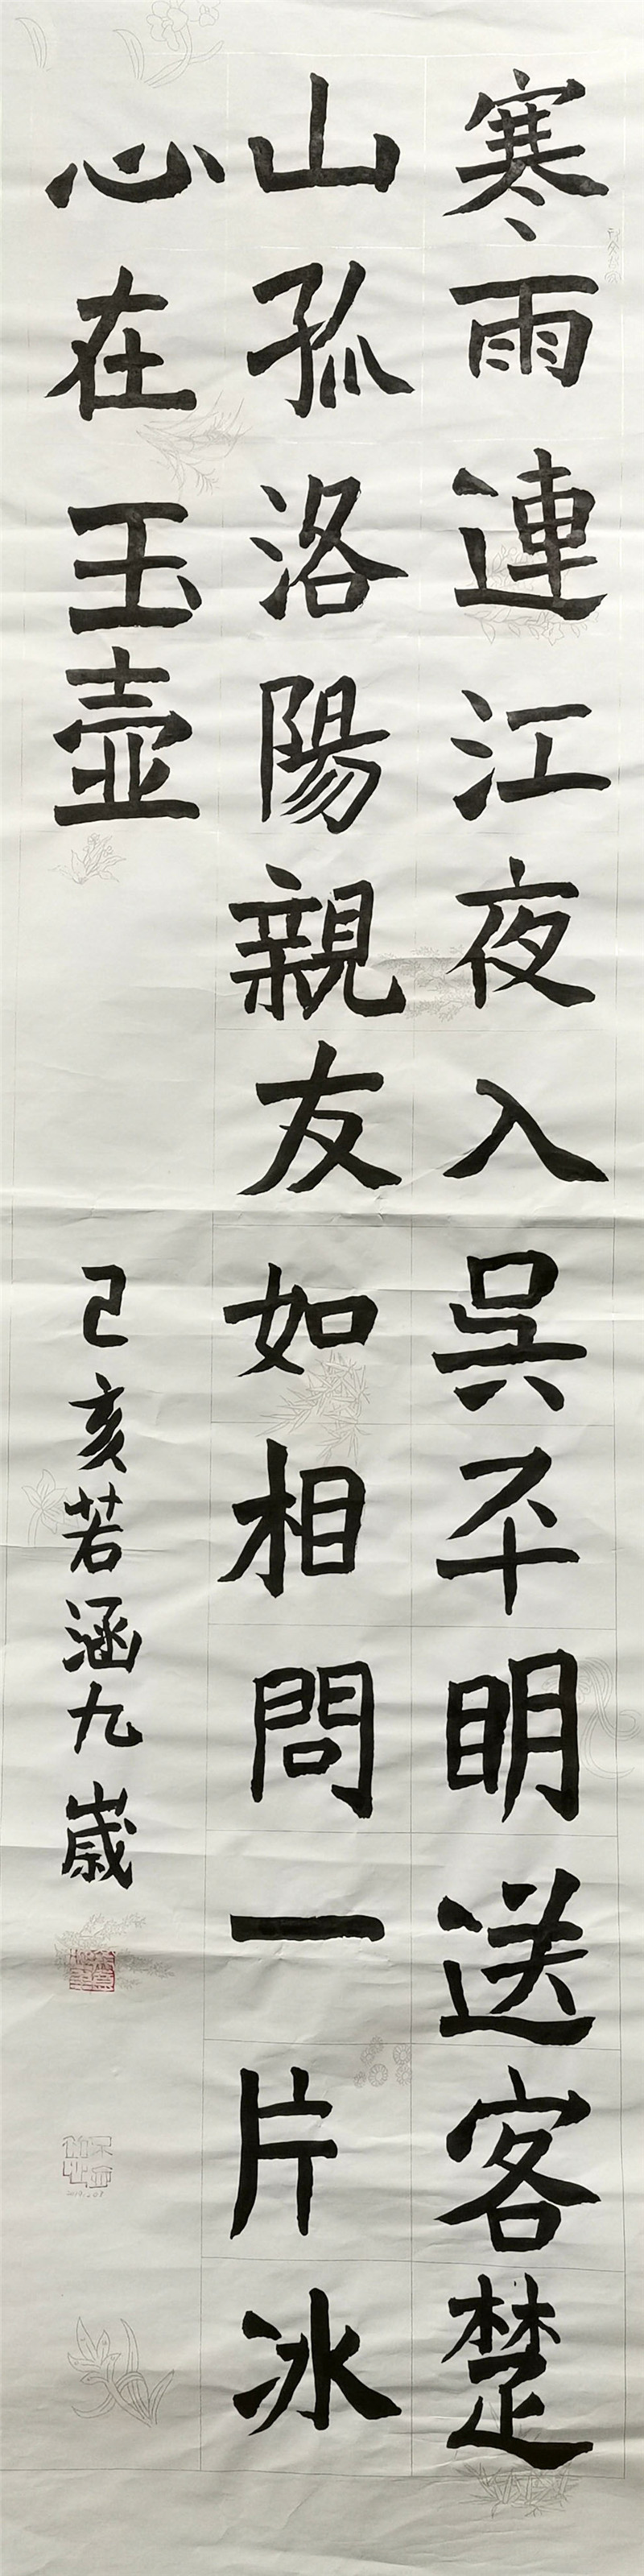 寒雨連江夜入吳平明送客楚
山孤洛陽親友如相問一片冰
心在玉壺
己亥若涵九歲